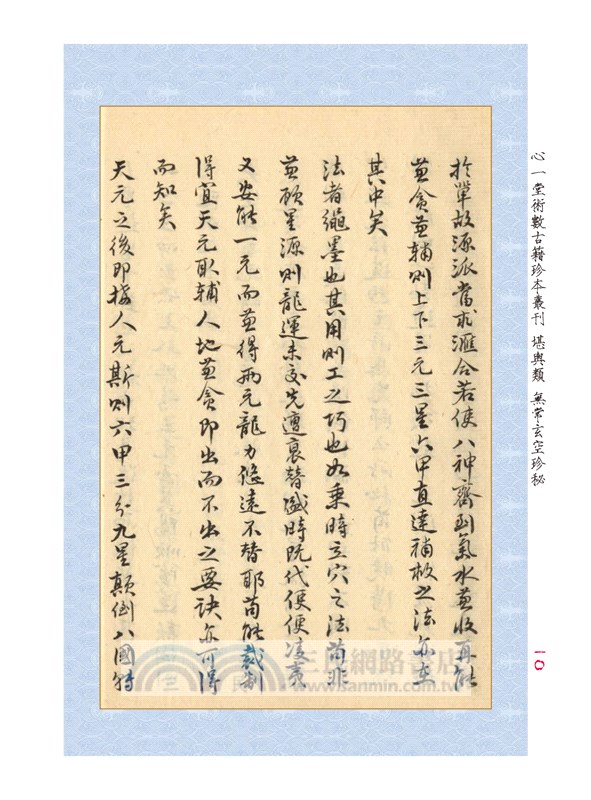 心一堂術數古籍珍本叢刊 堪輿類 無常玄空珍秘
於單故源派當求滙合若使八神齊到氣水兼收再能
兼貪兼輔則上下三元三星六甲直達補救之法亦在
其中矣
法者繩墨也其用則工之巧也如乘時立穴之法苟非
兼顧星源則龍運未交先遭衰替盛時既代便便凌夷
又安能一元而兼得兩元龍力悠遠不替耶苟能裁制
得宜天元取輔人地兼貪即出而不出之要訣亦可得
而知矣
天元之後即接人元斯則六甲三分九星顛倒八國
一〇
三民網路書店
www.sanmin.com.tw